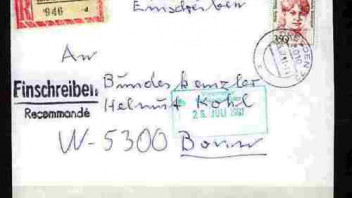 R
946
Einschreiben
350
An
Bundeskanzler
Einschreiben
Helmut Kohl
Recommandé
25. JULI
W-5300 Bonn